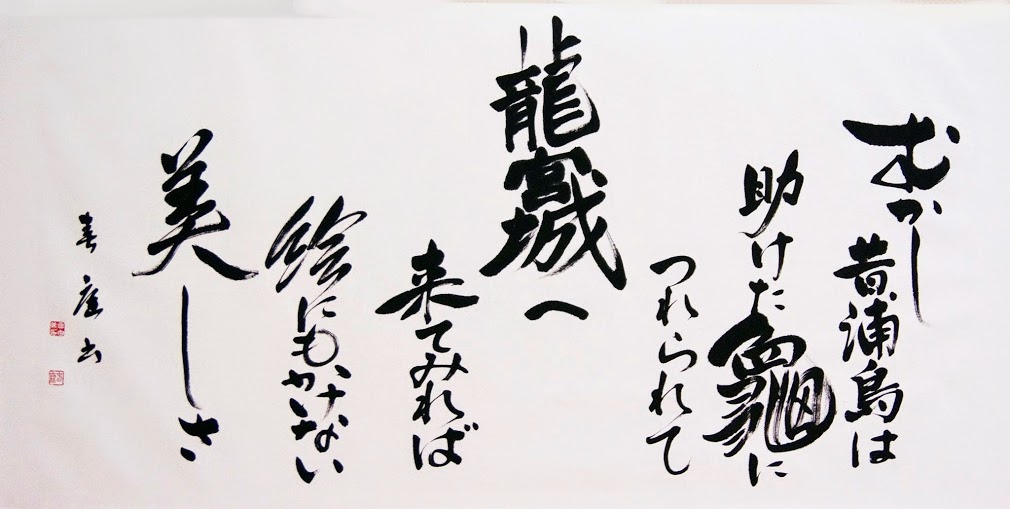 むかし
昔浦島は
助けた龜に
つれられて
龍宮城へ
来てみれば
絵にもかけない
美しさ